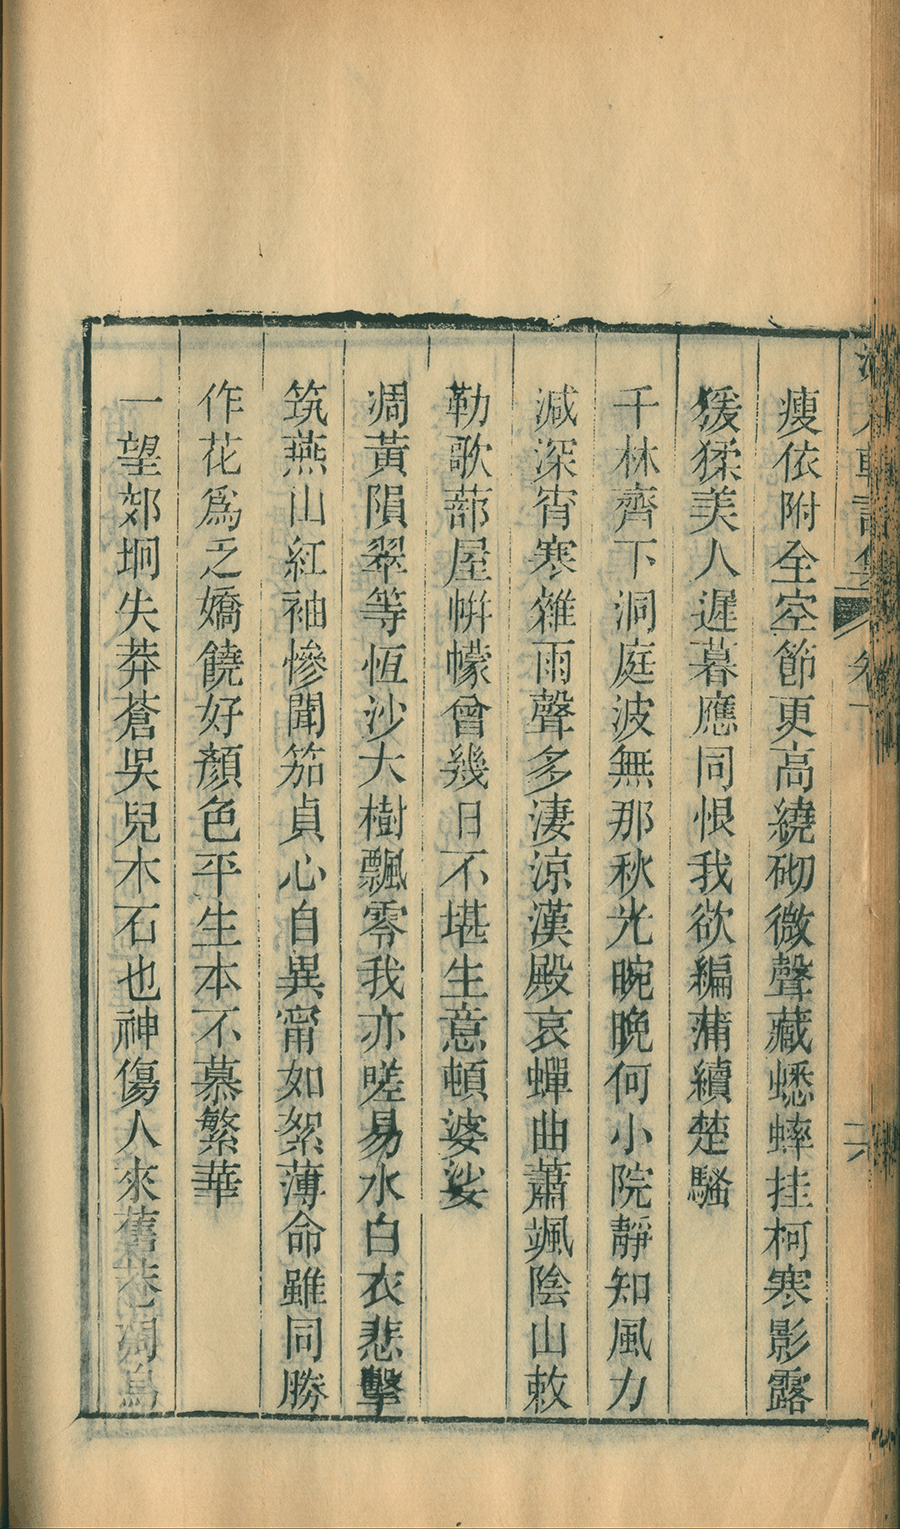 瘦依附全空節更高繞砌微聲藏蟋蟀挂柯寒影露
猨猱美人遲暮應同恨我欲編蒲續楚騷
千林齊下洞庭波無那秋光晼晚何小院靜知風力
減深宵寒雜雨聲多淒涼漢殿哀蟬曲蕭颯陰山敕
勒歌蔀屋帡幪曾幾日不堪生意頓婆娑
凋黃隕翠等恆沙大樹飄零我亦嗟易水白衣悲擊
筑燕山紅袖慘聞笳貞心自異甯如絮薄命雖同勝
作花爲乏嬌饒好顏色平生本不慕繁華
一望郊坰失莽蒼吳兒木石也神傷人來舊巷凋烏